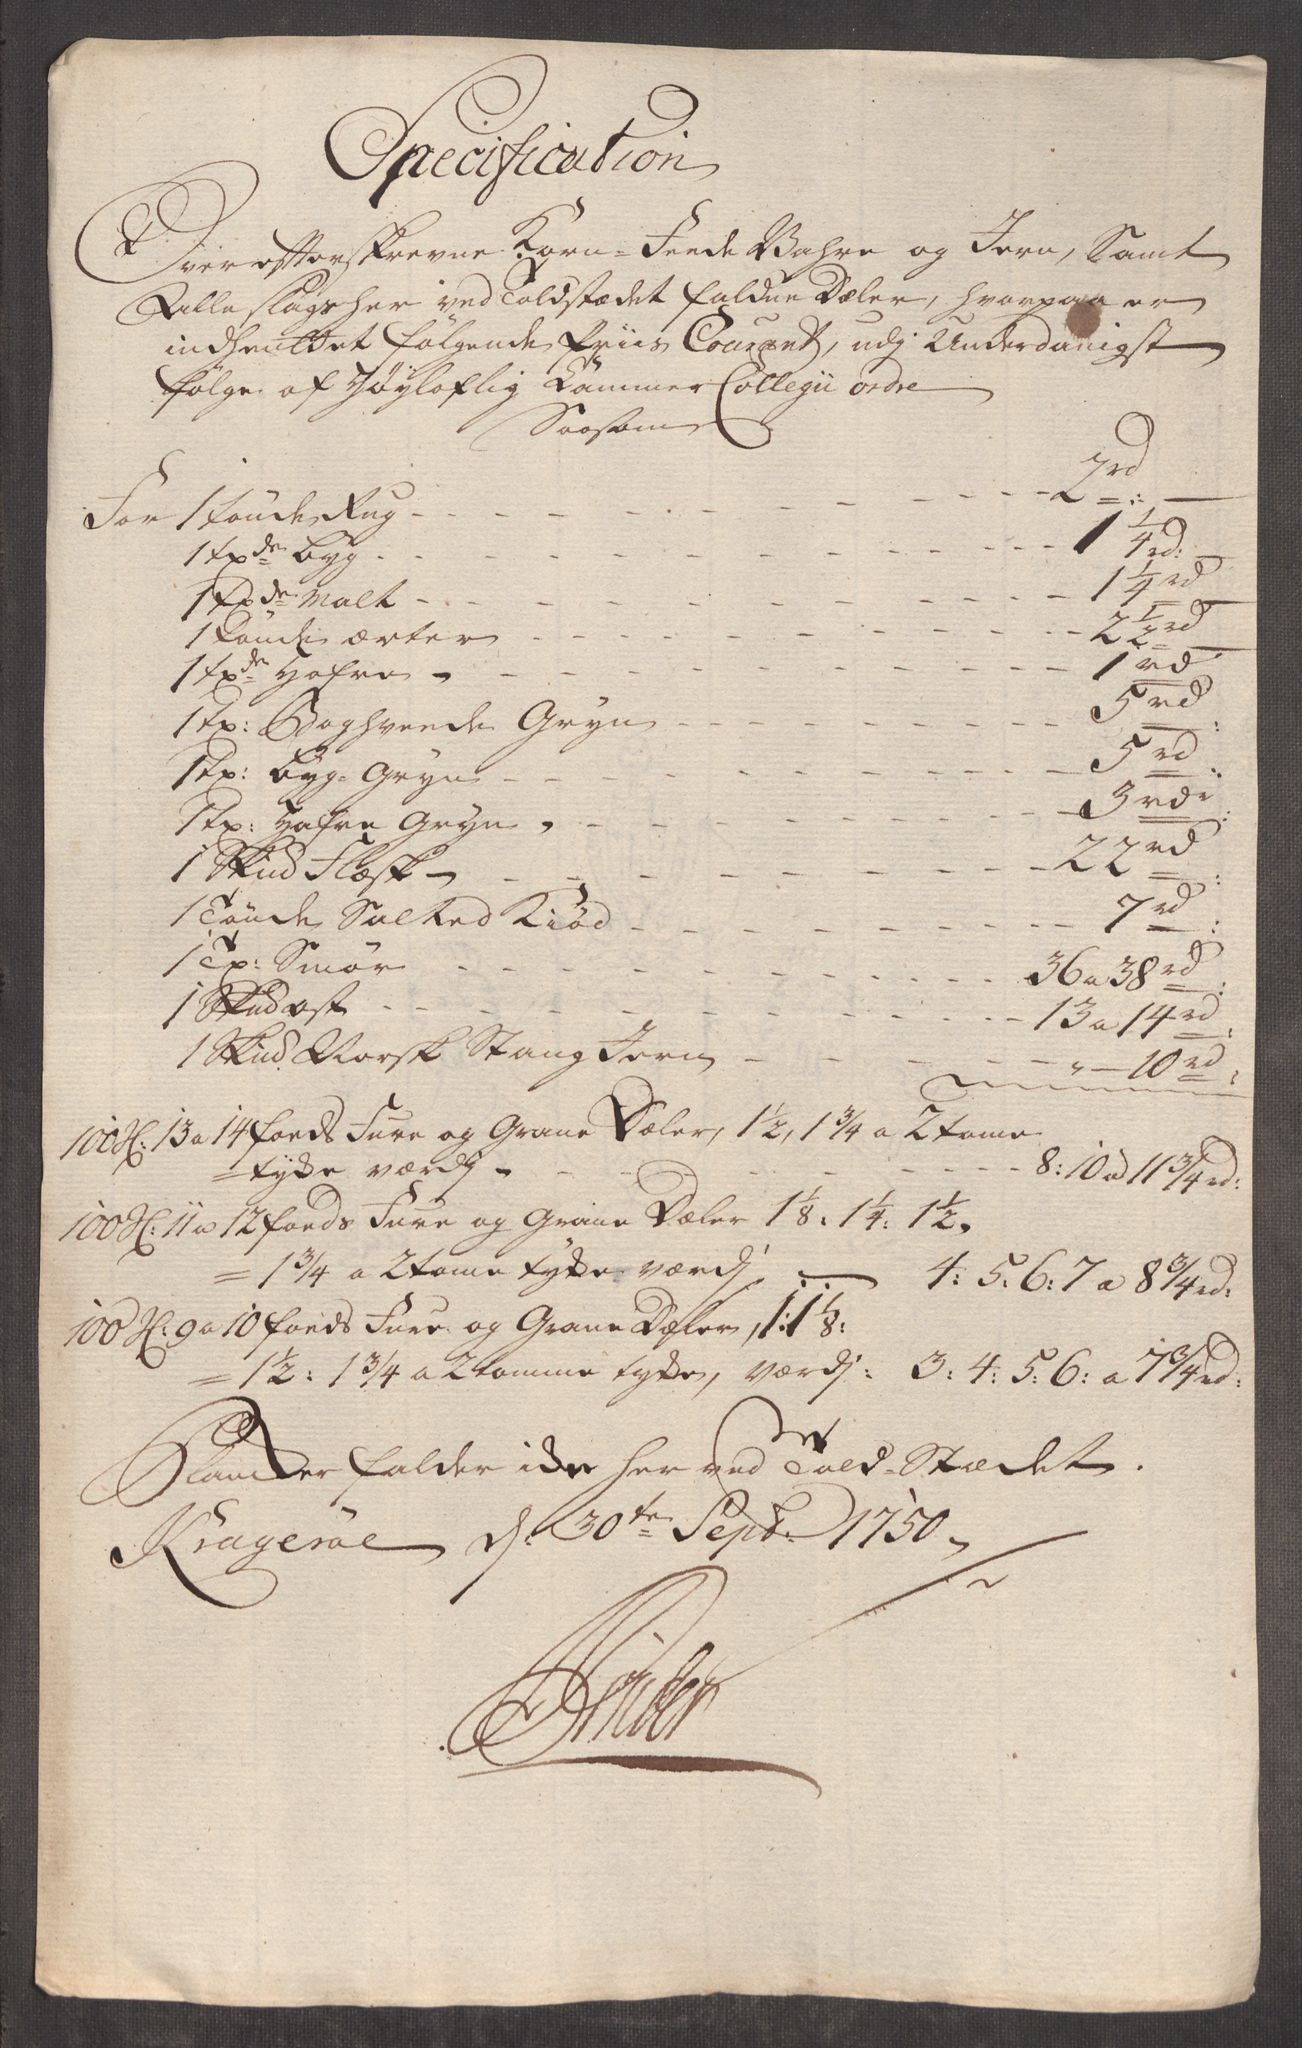 Specification
Over efterskrevne Korn- Feede Vahre og Jern, Samt
Alle slags her ved Toldstædet faldne Dæler, hvorpaa er
indhentet følgende Priis Courant, udj Underdanigst
følge af Høyloflig Cammer Collegii ordre
Saasom
For 1 tønde Rug - - - - - 2 rd
1 td de Byg - - - - - 1 1/4 rd:
1 td de Malt - - - - - 1 1/4 rd
1 tönde ærter - - - - - 2 1/2 rd
1 td de Hafre - - - - - 1 rd
1 td: Boghveede Gryn - - - - - 5 rd
1 td: Byg- Gryn - - - - - 5 rd
1 td: Hafre Gryn - - - - - 3 rd:
1 Skud Flæsk - - - - - 22 rd
1 Tönde Salted Kiød - - - - - 7 rd
1 Td: Smør - - - - - 36 a 38 rd
1 Skud ost - - - - - 13 a 14 rd
1 Skud Norsk Stang Jern - - - - - 10 rd
100 St: 13 a 14 foeds Fure og Grane Dæler, 1 1/2, 1 3/4 a 2 tome
= tykke værdj - - - - - 8: 10 a 11 3/4 rd:
100 St: 11 a 12 foeds Fure og Grane Dæler 1 1/8: 1 1/4: 1 1/2,
= 1 3/4 a 2 tome tykke værdj 4: 5: 6: 7 a 8 3/4 rd:
100 St: 9 a 10 foeds Fure og Grane Dæler, 1: 1 1/8:
= 1 1/2: 1 3/4 a 2 tomme tykke, værdj: 3: 4: 5: 6: a 7 3/4 rd:
Plancker falder ikke her ved Told-Stædet.
Kragerøe d: 30te Septbr: 1750